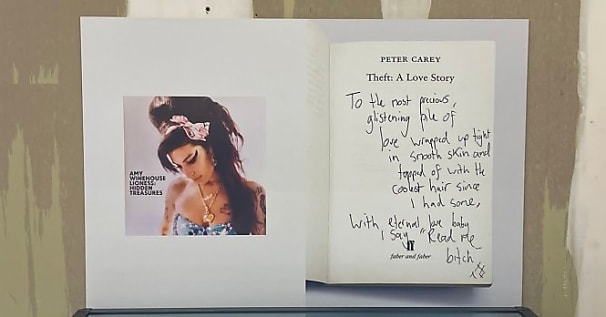 AMY
WINEHOUSE
LIONESS:
HIDDEN
TREASURES
PETER CAREY
Theft: A Love Story
To the most precious,
glistening pile of
love wrapped up tight
in smooth skin and
topped of with the
coolest hair since
I had some,
With eternal love baby
I say "Read Me
bitch
xx
ff
faber and faber